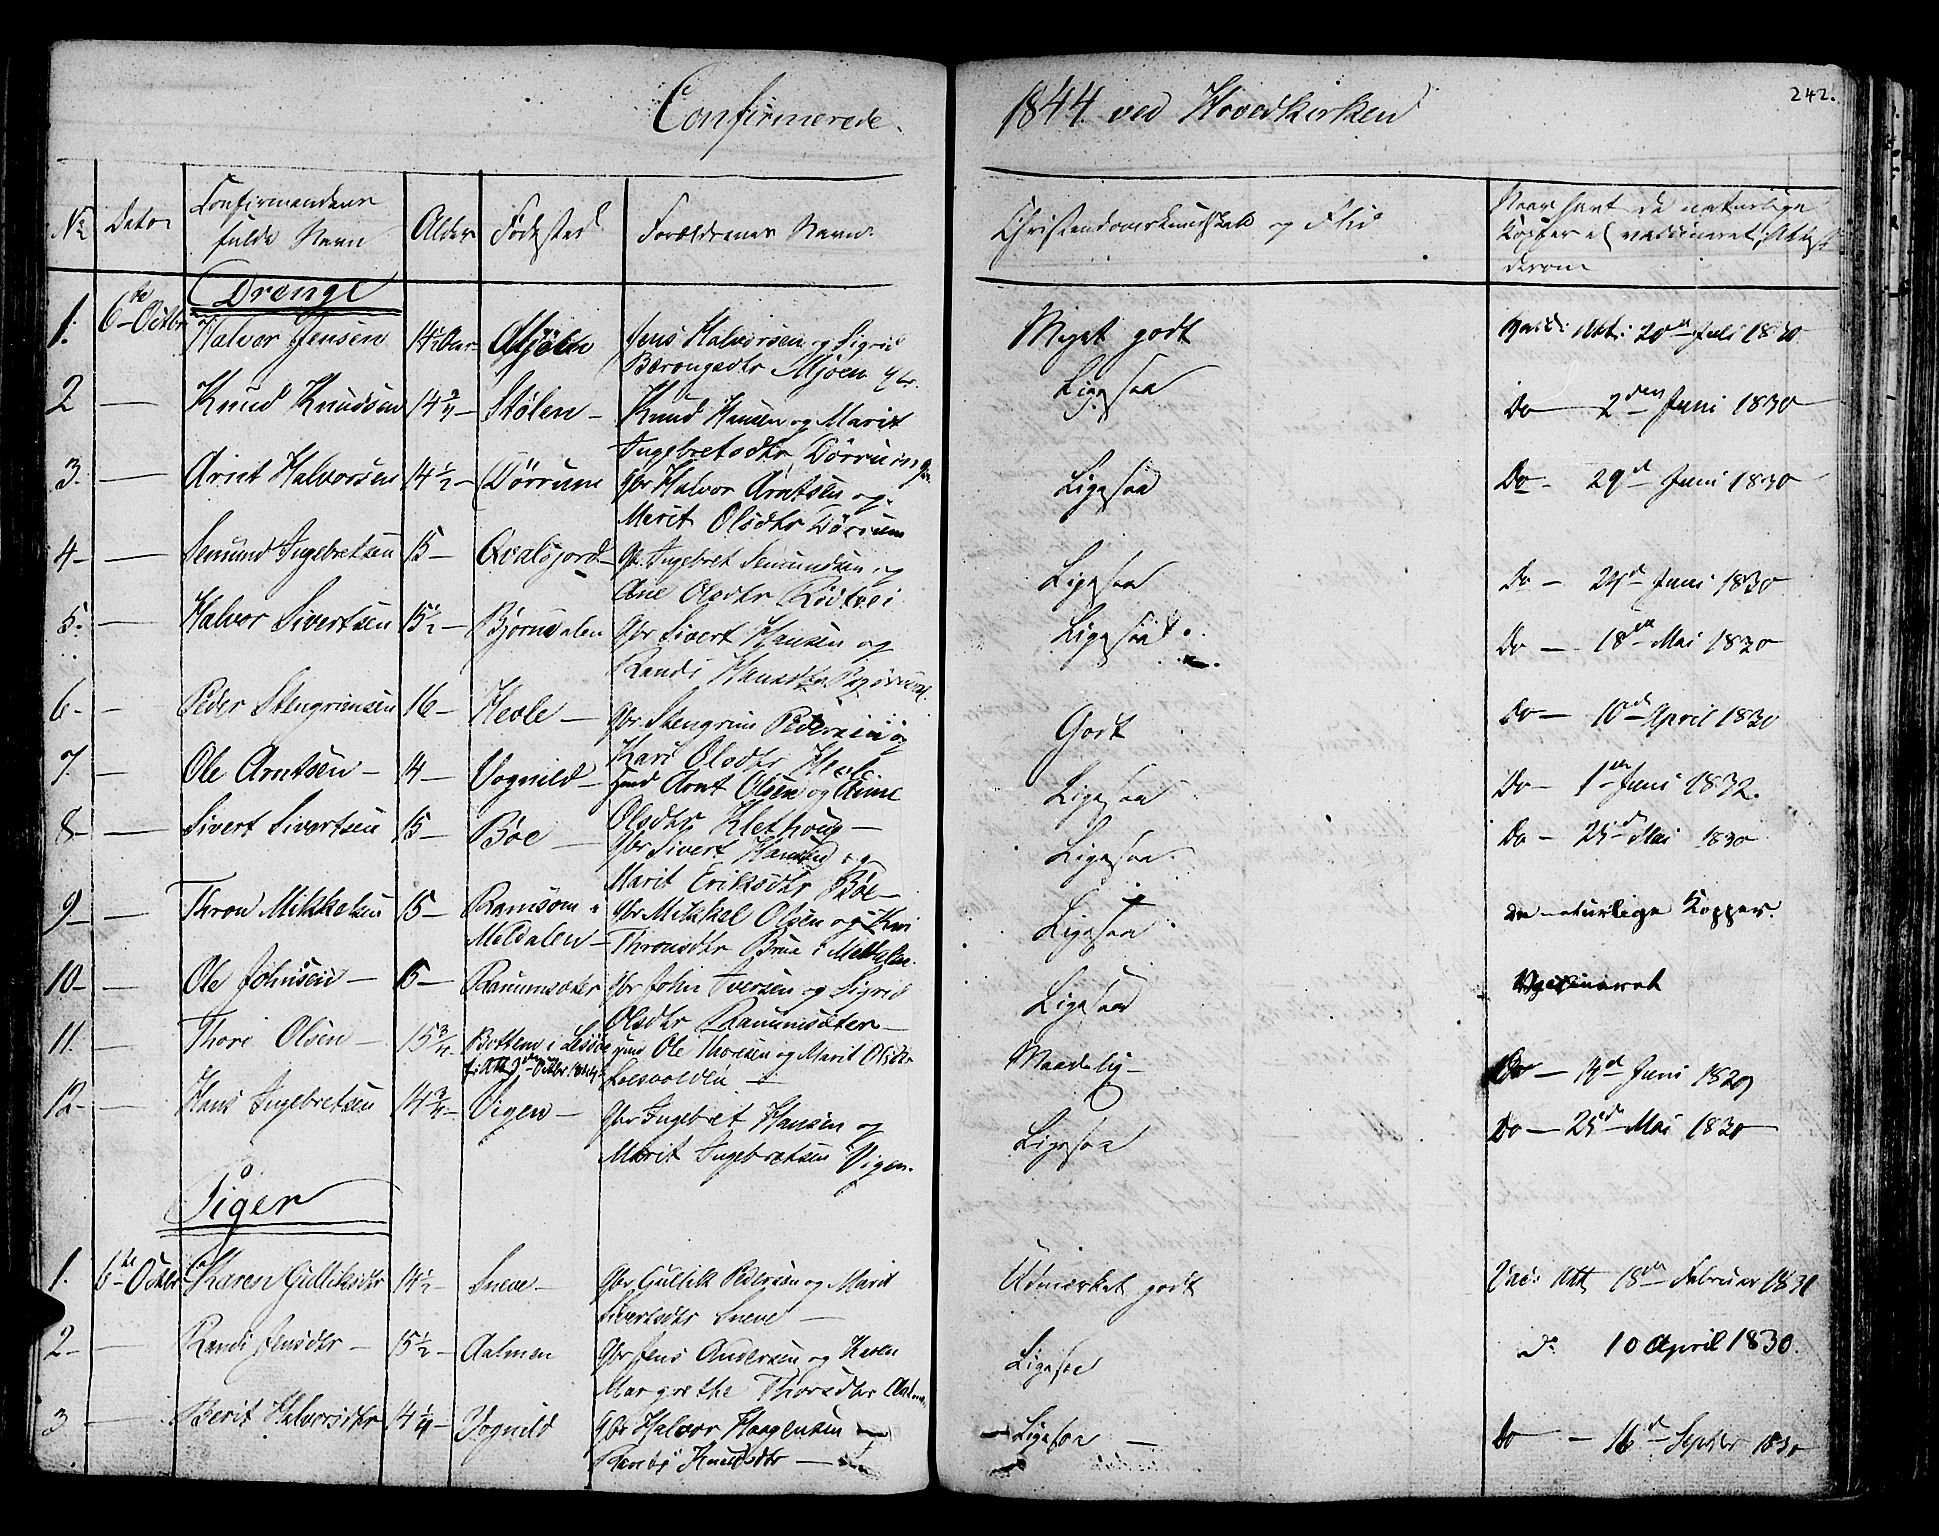 Confirmerede 1844 ved Hovedkirken
242.
No Dato Confirmandens fulde Navn Alder Födested Forældrenes Navne
Christendomskundskab og Flid
Naar havt de naturlige
Kopper el vaccineret, Attest
derom
Drenge
1. 6te Octbr Halvor Jensen 14 1/2 Aar Mjöen Jens Halvorsen og Sigrid
Meget godt 20de Juli 1830
2 — Knud Knudsen 14 3/4 — Stölen — Knud Hansen og Marit
Ingebretsdtr Dörrum
Ligesaa Do — 2den Juni 1830
3. — Arnt Halvorsen 14 1/2 — Dörrum Gbr Halvor Arntsen og
Marit Olsdtr Dörrum
Ligesaa Do — 29d Juni 1830
4 — — Semund Ingebretsen 15 — Qvalsjord — Gbr Ingebret Semundsen og
Ane Olsdtr
Ligesaa Do — Juni 1830
5. — Halvor Sivertsen 15 1/2 — Björndalen Gbr Sivert Hansen og
Randi Hansdtr
Ligesaa Do — 18de Mai 1830
6 — — Peder Stengrimsen 16 — Hevle — Gbr Stengrim Pedersen og
Kari Olsdtr Hevle
Godt Do — 10de April 1830
7. — Ole Arntsen — 14 — Vognild — Hmd Arnt Olsen og Anne
Olsdtr Klethoug —
Ligesaa Do — 1ste Juni 1832.
8 — — Sivert Sivertsen 15 — Böe — Gbr Sivert Hansen og
Marit Eriksdtr Böe —
Ligesaa Do — 25d Mai 1830
9 — — Thron Mikkelsen 15 — Ramsöm i
Meldalen — Gbr Mikkel Olsen og
Thronsdtr i
Ligesaa De naturlige Kopper.
10 — — Ole Johnsen — 15 — Raumsæter Gbr John Iversen og Sigrid
Olsdtr Raumsæter —
Ligesaa Vaccineret
11. — Thore Olsen — 15 3/4 Bottem i Lesöe
Ole Thoresen og Marit Olsdtr
Maadelig — Do — 14d Juni 1829
12 — — Hans Ingebretsen 14 3/4 — Vigen — Gbr Ingebret Hansen og
Marit Ingebretsen Vigen.
Ligesaa Do — 25d Mai 1830
Piger
1. 6te Octbr Karen Gulliksdtr 14 1/2 Sneve — Gbr Gullik Pedersen og Marit
Sivertsdtr Sneve —
Udmærket godt Vac: Att 18de Februar 1831
2 — — Randi Jensdtr — 15 1/2 — Aalmen Gbr Jens Andersen og Karen
Margrethe Thorsdtr
Ligesaa do 10 April 1830.
3 — Berit Halvorsdtr 14 1/4 — Vognild Gbr Halvor Haagensen
Randi Knudsdtr —
Ligesaa — Do — 16d Septbr 1830